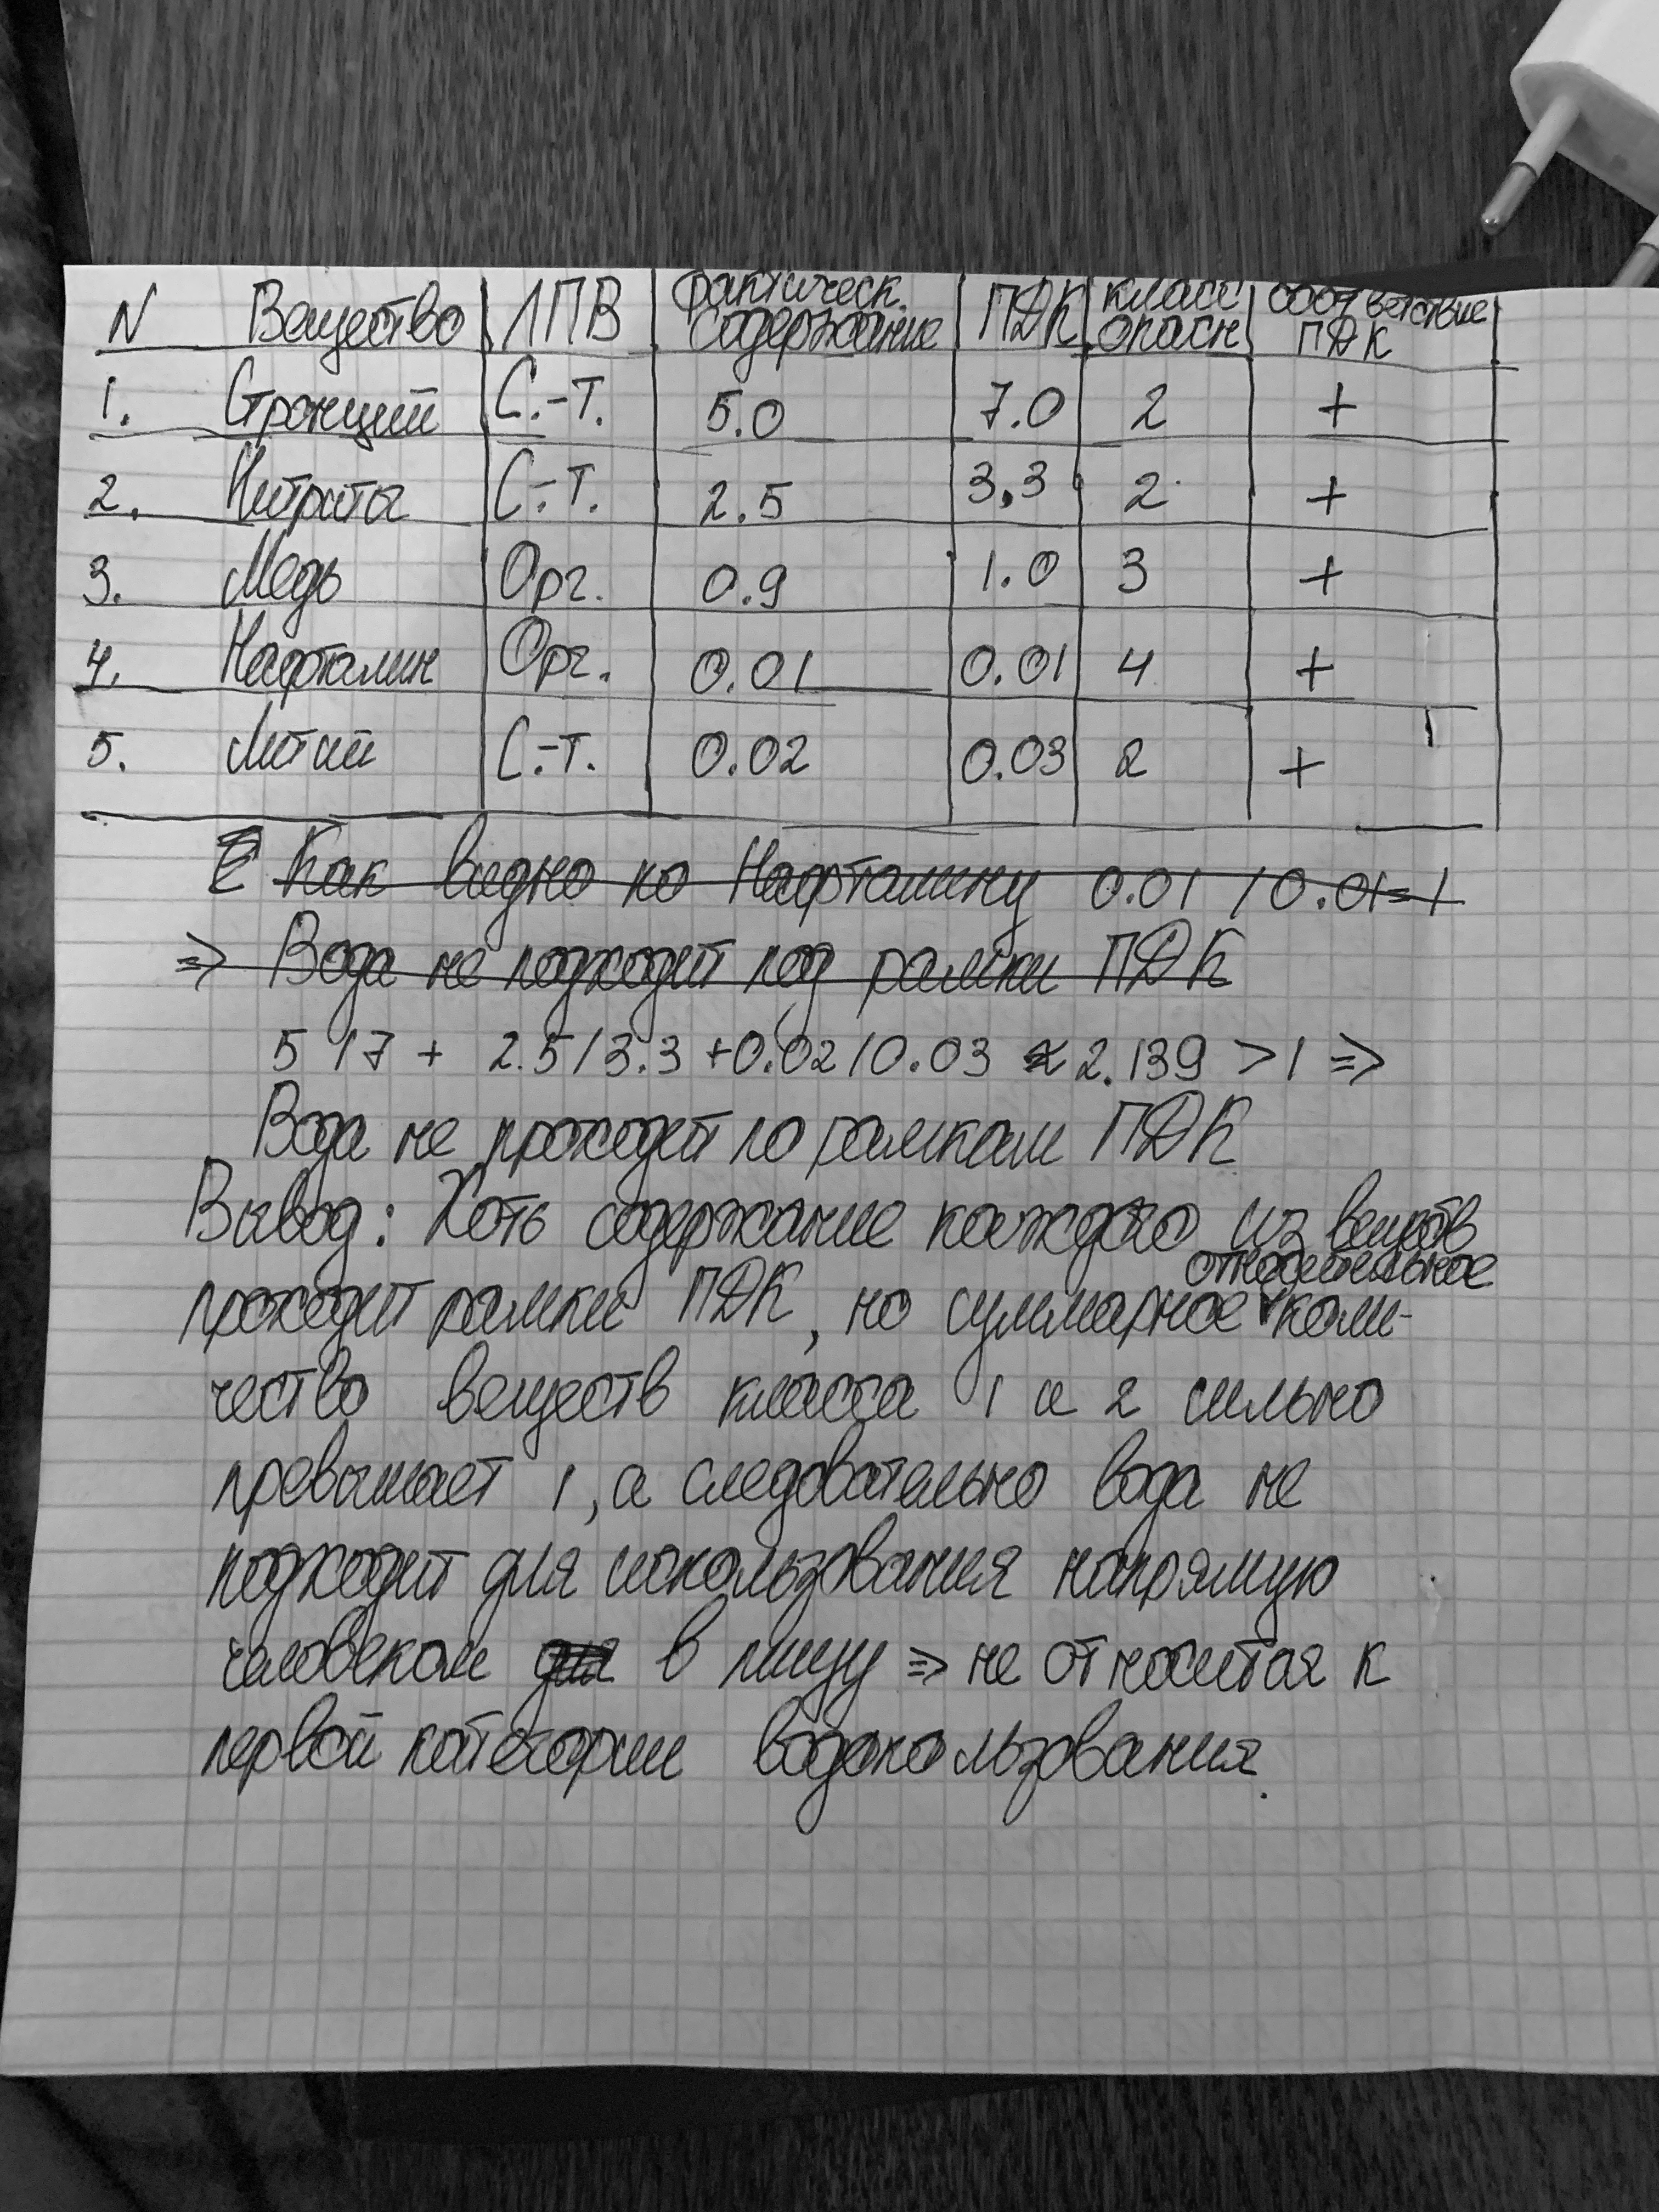 N Вещество ЛПВ фактическ. содержание ПДК класс опасн соответствие ПДК
1. Стронций С.-Т. 5.0 7.0 2 +
2. Нитриты С.-Т. 2.5 3,3 2 +
3. Медь Орг. 0.9 1.0 3 +
4. Нафталин Орг. 0.01 0.01 4 +
5. Литий С.-Т. 0.02 0.03 2 +
Как видно по Нафталину 0.01 / 0.01=1
=> Вода не подходит под рамки ПДК
5 / 7 + 2.5 / 3.3 + 0.02 / 0.03 ≈ 2.139 > 1 =>
Вода не проходит по рамкам ПДК
Вывод: Хоть содержание каждого из веществ
проходит рамки ПДК, но суммарное относительное коли-
чество веществ класса 1 и 2 сильно
превышает 1, а следовательно вода не
подходит для использования напрямую
человеком в пищу => не относится к
первой категории водопользования.